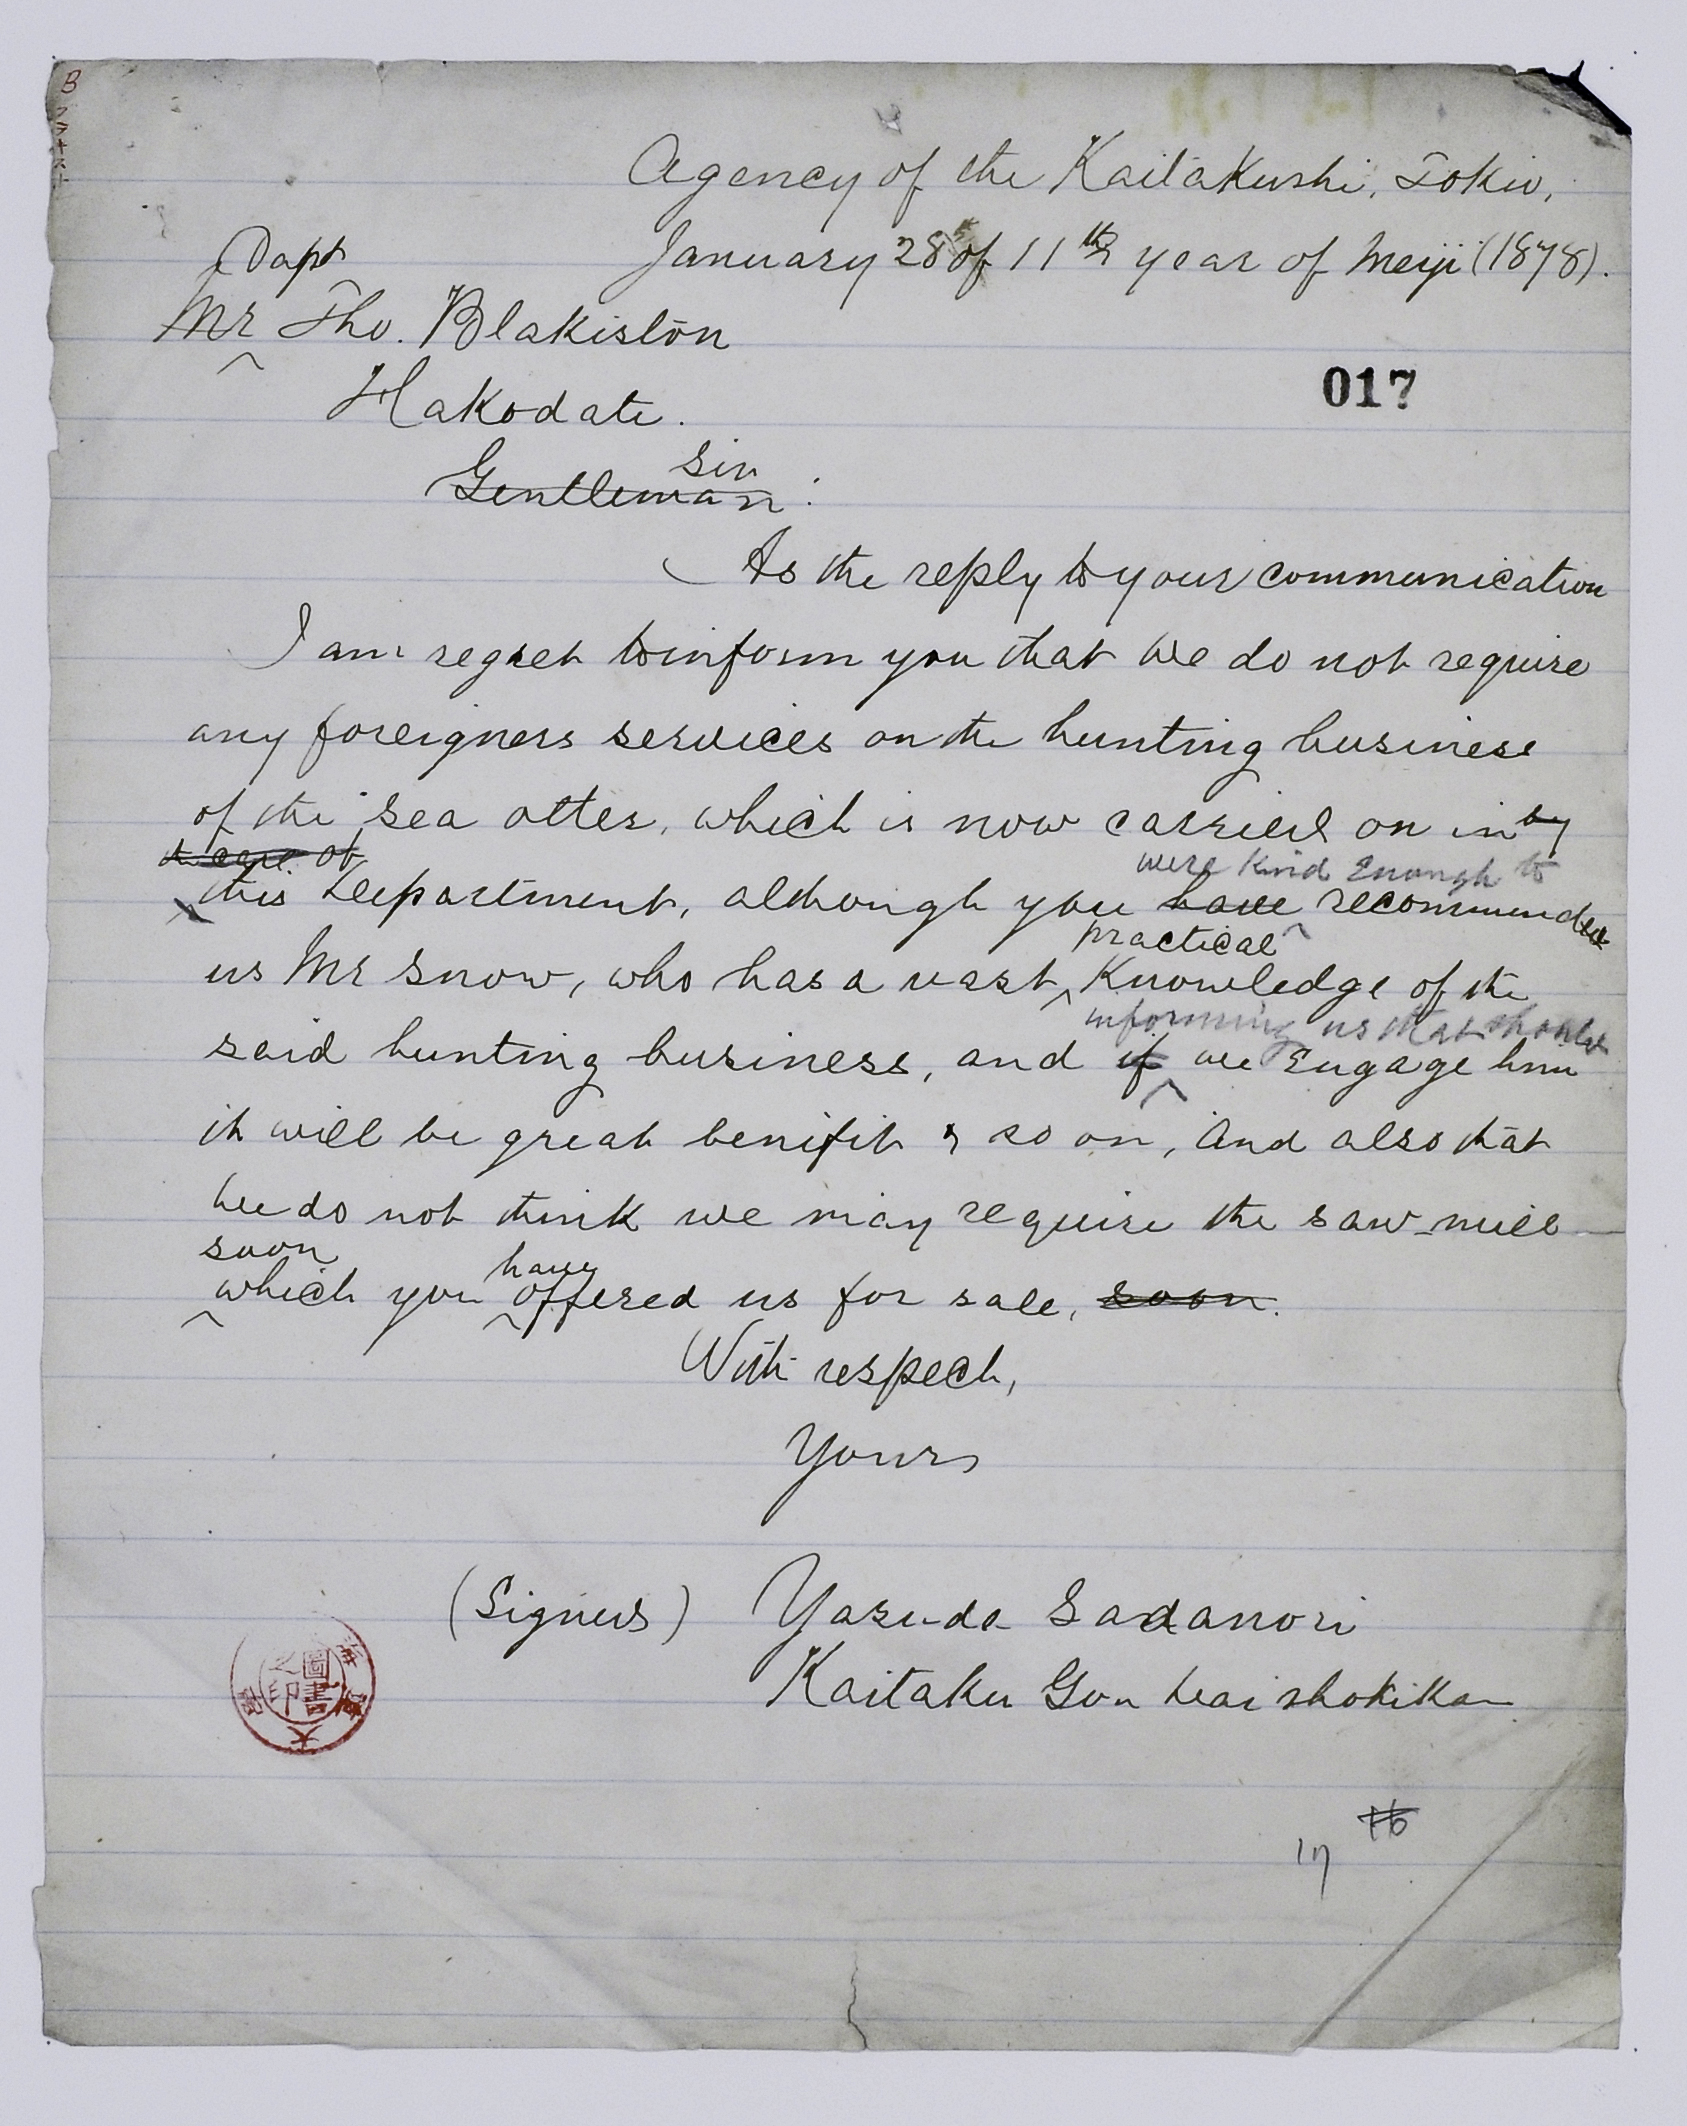 Agency of the Kaitakushi, Tokio,
January 28th of 11th year of Meiji (1878).
Capt
Mr Tho. Blakiston
Hakodate.
017
Sir
Gentleman:
As the reply to your communication
I am regret to inform you that we do not require
any foreigners services on the hunting business
of the sea otter, which is now carried on in by
the care of
this Department, although you have recommended
were kind enough to
practical
us Mr Snow, who has a vast Knowledge of the
informing us that should
said hunting business, and if we Engage him
it will be great benifit & so on, and also that
we do not think we may require the saw-mill
soon
have
which you offered us for sale, soon.
With respect,
Yours
(Signed) Yasuda Sadanori
Kaitaku Gon dai shokikan
圖書之印
16
17